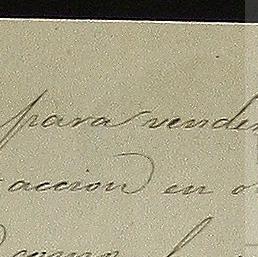 para vender
accion en
como